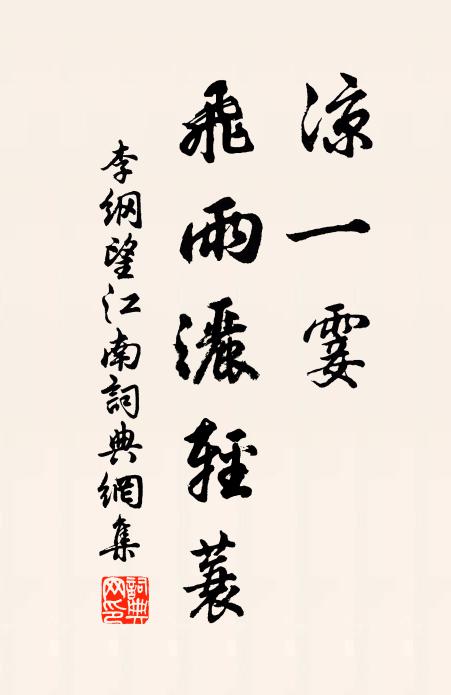 涼一霎
飛雨灑輕蓑
李綱望江南詞典網集
詞典
网印